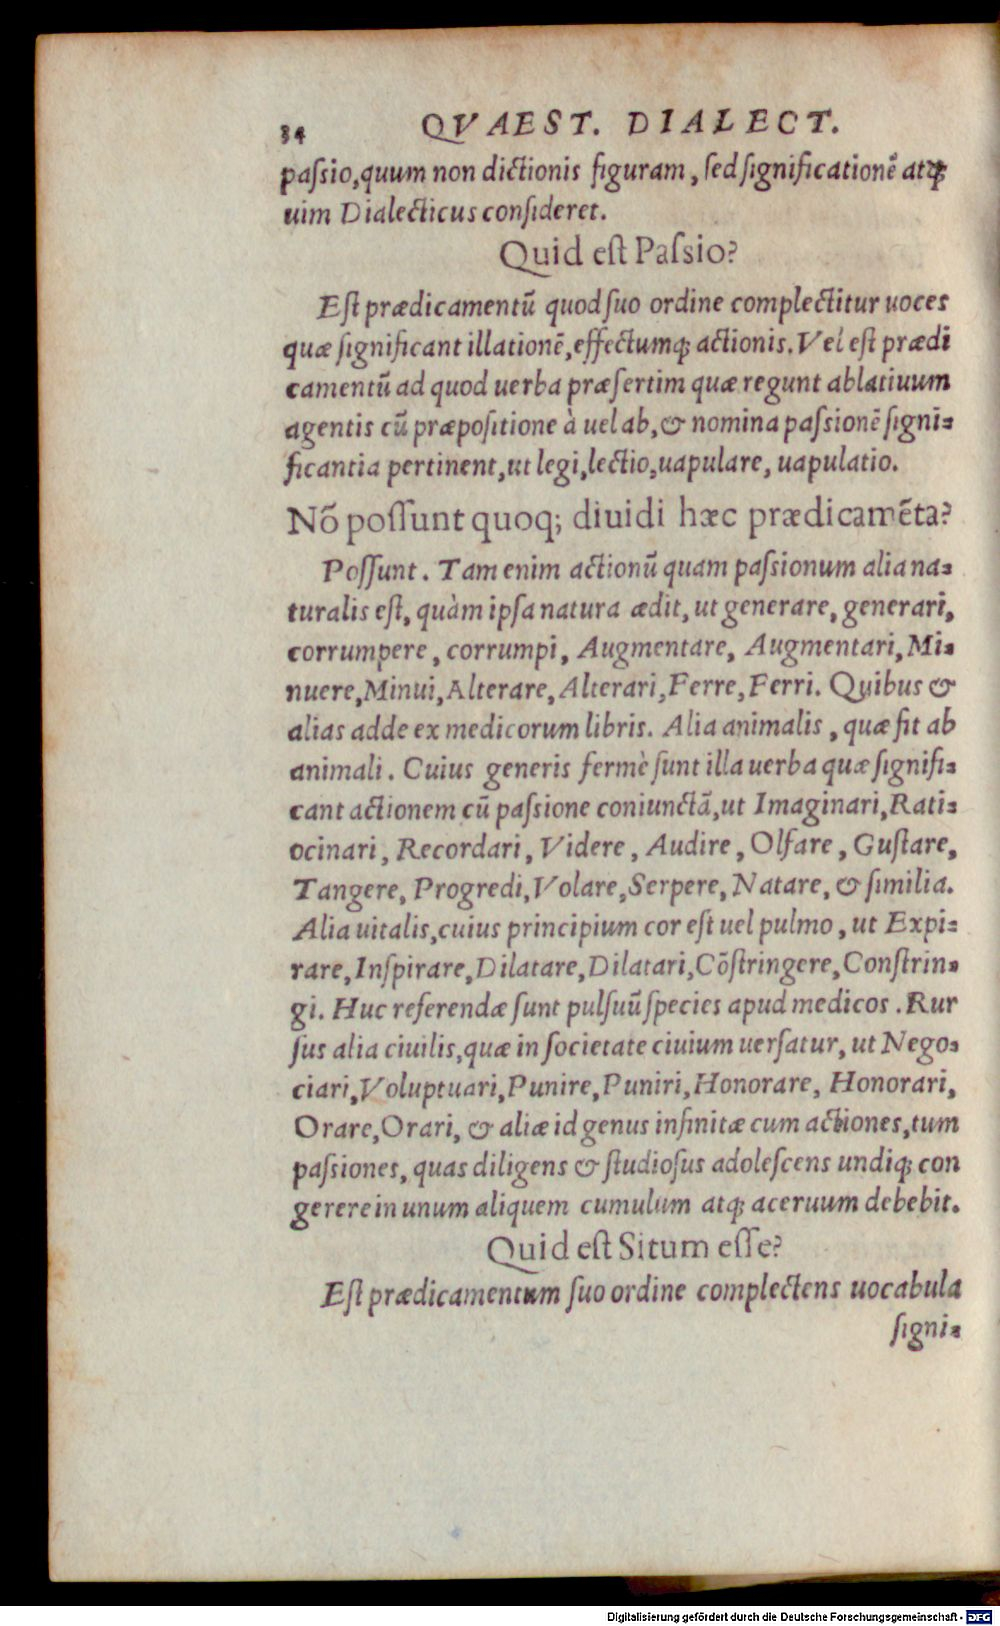 34 QVAEST. DIALECT.
paſsio, quum non dictionis figuram, ſed ſignificationē atq́;
uim Dialecticus conſideret.
Quid eſt Paſsio?
Eſt prædicamentū quod ſuo ordine complectitur uoces
quæ ſignificant illationē, effectumq; actionis. Vel eſt prædi
camentū ad quod uerba præſertim quæ regunt ablatiuum
agentis cū præpoſitione à uel ab, & nomina paſsionē ſigni=
ficantia pertinent, ut legi, lectio, uapulare, uapulatio.
Nō poſſunt quoq; diuidi hæc prædicamēta?
Poſſunt. Tam enim actionū quam paſsionum alia na=
turalis eſt, quàm ipſa natura ædit, ut generare, generari,
corrumpere, corrumpi, Augmentare, Augmentari, Mi=
nuere, Minui, Alterare, Alterari, Ferre, Ferri. Quibus &
alias adde ex medicorum libris. Alia animalis, quæ fit ab
animali. Cuius generis fermè ſunt illa uerba quæ ſignifi=
cant actionem cū paſsione coniunctā, ut Imaginari, Rati=
ocinari, Recordari, Videre, Audire, Olfare, Guſtare,
Tangere, Progredi, Volare, Serpere, Natare, & ſimilia.
Alia uitalis, cuius principium cor eſt uel pulmo, ut Expi=
rare, Inſpirare, Dilatare, Dilatari, Cōſtringere, Conſtrin=
gi. Huc referendæ ſunt pulſuū ſpecies apud medicos. Rur
ſus alia ciuilis, quæ in ſocietate ciuium uerſatur, ut Nego=
ciari, Voluptuari, Punire, Puniri, Honorare, Honorari,
Orare, Orari, & aliæ id genus infinitæ cum actiones, tum
paſsiones, quas diligens & ſtudioſus adoleſcens undiq; con
gerere in unum aliquem cumulum atq; aceruum debebit.
Quid eſt Situm eſſe?
Eſt prædicamentum ſuo ordine complectens uocabula
ſigni=
Digitalisierung gefördert durch die Deutsche Forschungsgemeinschaft - DFG